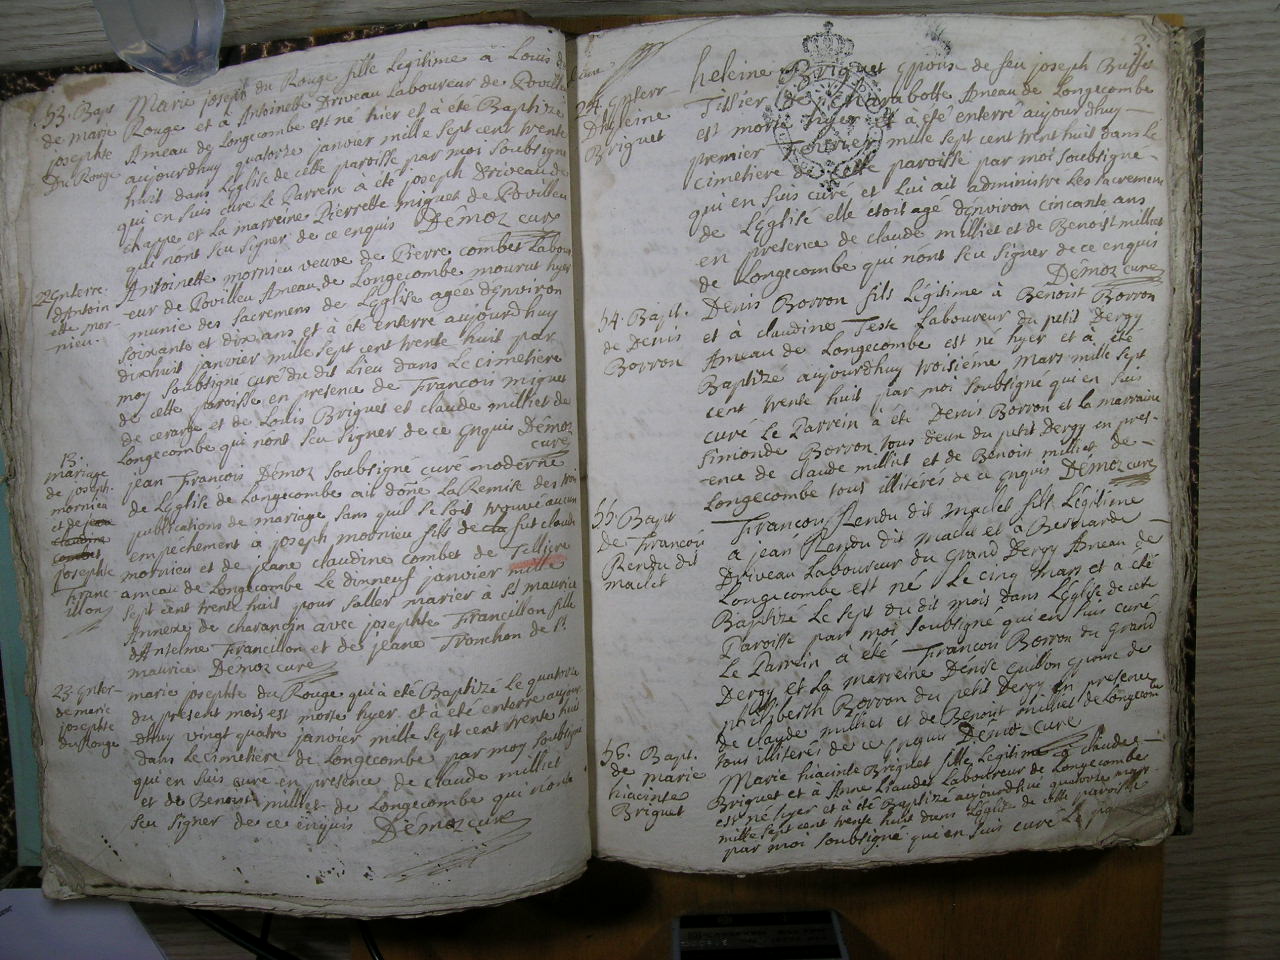 53. Bapt
de marie
josephte
Du Rouge
Marie joseph du Rouge fille Légitime à Louis du
Rouge et à Antoinette Driveau Laboureur de Povilleu
Ameau de Longecombe est né hier et à été Baptizé
aujourdhuy quatorze janvier mille sept cent trente
huit dans L'église de cette paroisse par moi soubsigné
qui en suis curé Le Parrein a été joseph Driveau de
charpe et La marreine Pierrette miguet de Povilleu
qui nont sçu signer de ce enquis Démoz curé
22 Enterre.
d'Antoin
ette mor-
nieu.
Antoinette mornieu veuve de Pierre combet Labour
eur de Povilleu Ameau de Longecombe mourut hyer
munie des sacremens de L'église agée d'Environ
soixante et dix ans et à été enterré aujourdhuy
dixhuit janvier mille sept cent trente huit par
moy soubsigné curé du dit Lieu dans Le cimetiere
de cette paroisse en presence de François miguet
de cerarge et de Louis Briguet et claude milliet de
Longecombe qui nont sçu signer de ce Enquis Démoz
curé
13.
mariage
de joseph
mornieu
et de jeane
claudine
combet
josephte
Franc
illon
jean François Démoz soubsigné curé moderne
de L'église de Longecombe ait doñé La Remise des troi
publications de mariage sans quil se soit trouvé aucun
empechement à joseph mornieu fils de feu claude
mornieu et de jeane claudine combet de Tilliere
ameau de Longecombe Le dinneuf janvier mille
sept cent trente huit pour saller marier à St maurice
Annexe de charancin avec josephte Francillon fille
d'Anselme Francillon et de jeane Tronchon de St
maurice Démoz curé
23. Enter-
de marie
josephte
du Rouge
marie josephte du Rouge qui a été Baptizé Le quatorze
du present mois est morte hyer et à été enterré aujour
dhuy vingt quatre janvier mille sept cent trente huit
dans Le cimetiere de Longecombe par moy soubsigné
qui en suis curé en presence de claude milliet
et de Benoist milliet de Longecombe qui nont
sçu signer de ce enquis Démoz curé
3.
24. Enterr-
D'heleine
Briguet
heleine Briguet Epouse de feu joseph Buffet
Tillier de charabotte Ameau de Longecombe
est morte hyer et a été enterré aujourdhuy
premier fevrier mille sept cent trent huit dans Le
cimetiere de cette paroisse par moi soubsigné
qui en suis curé et Lui ait administré Les sacremens
de L'église elle étoit agé d'Environ cincante ans
en presence de claude milliet et de Benoist milliet
de Longecombe qui nont sçu signer de ce enquis
Démoz curé
54. Bapt.
de Denis
Borron
Denis Borron fils Légitime à Benoist Borron
et à claudine Teste Laboureur du petit Dergy
Ameau de Longecombe est né hyer et à été
Baptizé aujourdhuy troisiéme mars mille sept
cent trente huit par moi soubsigné qui en suis
curé Le Parrein à été Denis Borron et la marraine
simonde Borron tous deux du petit Dergy en pres-
ence de claude milliet et de Benoist milliet de
Longecombe tous illiterés de ce enquis Démoz curé
55. Bapt
de François
Rendu dit
maclet
François Rendu dit maclet fils Légitime
à jean Rendu dit maclet et à Bernarde
Driveau Laboureur du grand Dergy Ameau de
Longecombe est né Le cinq mars et à été
Baptizé Le sept du dit mois dans L'église de cete
Paroisse par moi soubsigné qui en suis curé
Le Parrein à été François Borron du grand
Dergy et La marreine Denise Guillon Epouse de
philiberth Borron du petit Dergy en presence
de claude milliet et de Benoist milliet de Longecombe
tous illiterés de ce Enquis Démoz curé
56. Bapt.
de marie
hiacinte
Briguet
Marie hiacinte Briguet fille Légitime à claude
Briguet et à Anne Liaudet Laboureur de Longecombe
est né hyer et à été Baptizé aujourdhui quatorze mars
mille sept cent trente huit dans L'église de cette paroisse
par moi soubsigné qui en suis curé Le